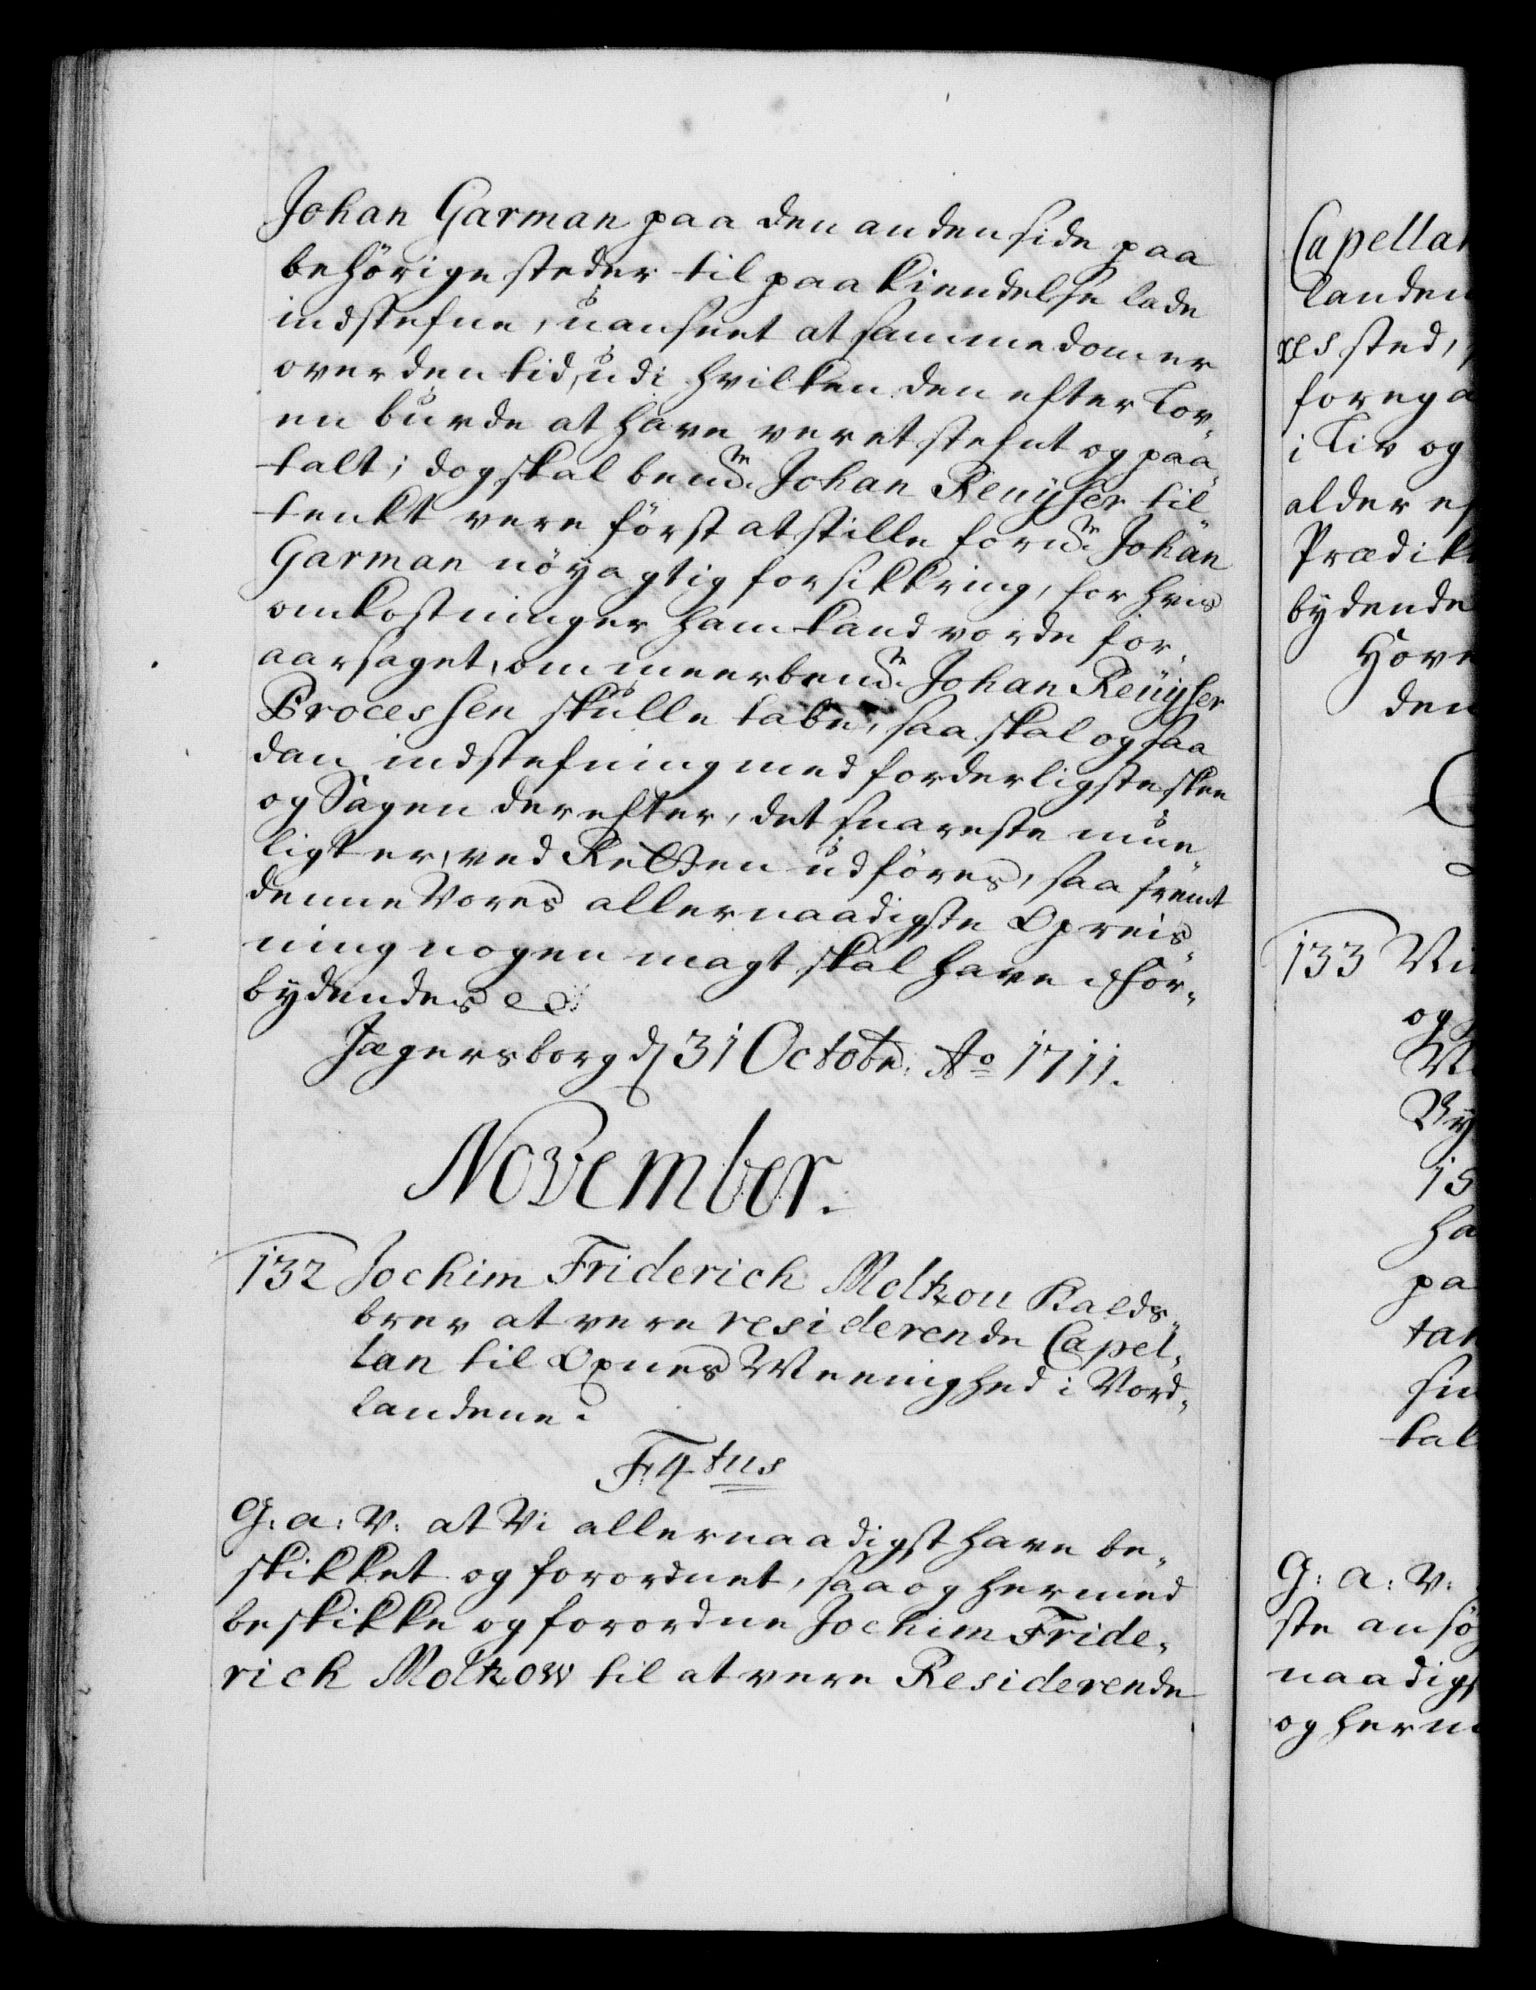 Johan Garman paa den anden side paa
behörige steder til paakiendelse lade
indstefne, uanseet at samme dom er
over den tid, udi hvilken den efter Lov-
en burde at have veret stefnt og paa
talt; dog skal bemte Johan Reuyser til
tenkt vere först at stille formte Johan
Garman nöyagtig forsikkring, for hvis
omkostninger ham kand vorde for-
aarsaget, om meerbemte Johan Reuyser
Processen skulle tabe, saa skal og saa
dan indstefning med forderligste skee
og Sagen derefter, det snareste mue-
ligt er, ved Retten udföres, saa fremt
denne Vores allernaadigste Opreis-
ning nogen magt skal have. For-
bydendes etc:
Jægersborg d 31 Octobr. Ao 1711.
November.
132 Jochim Friderich Moltzou Kalds-
brev at vere residerende Capel-
lan til Opnes Meenighed i Nord-
landene.
F. 4tus
G: a: V: at Vi allernaadigst have be-
skikket og forordnet, saa og hermed
beskikke og forordne Jochim Fride-
rich Moltzow til at vere Residerende
Capellan
landen
res sted,
forega
i Liv og
alder ef
Prædik
bydende
Hove
den
133 Vi
og
15
ha
pa
tan
tal
G: a: V:
ste ansö
naadigs
og herm